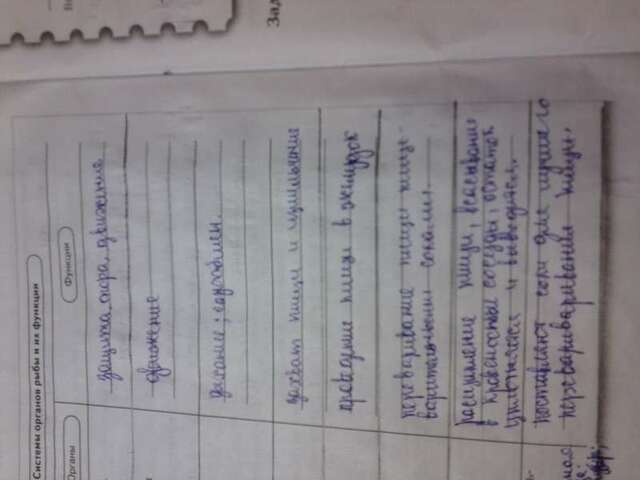 Зад
Системы органов рыбы и их функции
Органы
Функции
защита, опора, движение
движение
дыхание, газообмен.
захват пищи и измельчение
проведение пищи в желудок
переваривание пищи пище-
варительными соками
расщепление пищи, всасывание
в кровеносные сосуды, остаток
уплотняется и выводится.
поставляет сок для лучшего
переваривания пищи.
ная